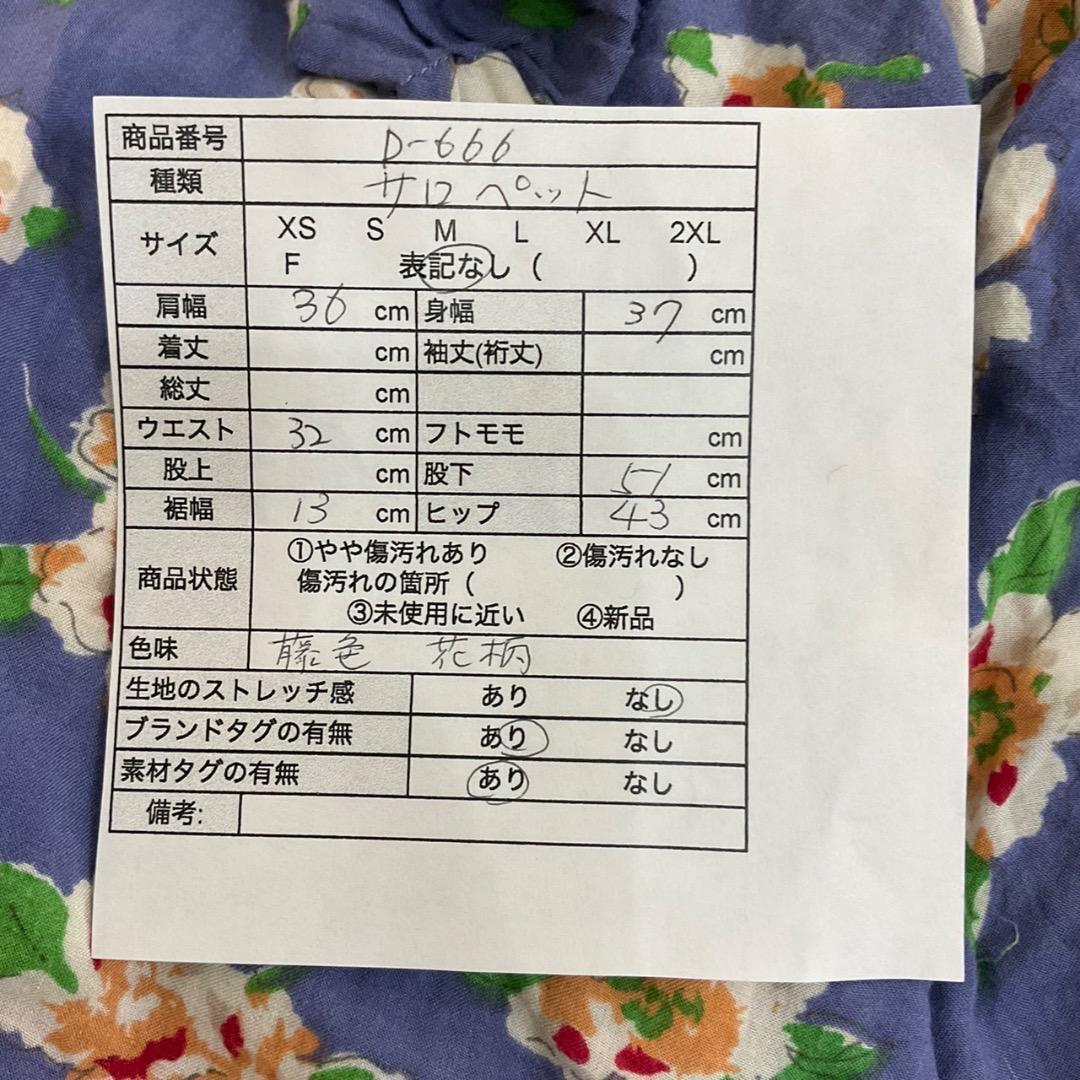 商品番号 D-666
種類 サロペット
サイズ XS S M L XL 2XL
F 表記なし ( )
肩幅 36 cm 身幅 37 cm
着丈 cm 袖丈(裄丈) cm
総丈 cm
ウエスト 32 cm フトモモ cm
股上 cm 股下 51 cm
裾幅 13 cm ヒップ 43 cm
商品状態 ①やや傷汚れあり ②傷汚れなし
傷汚れの箇所 ( )
③未使用に近い ④新品
色味 藤色 花柄
生地のストレッチ感 あり なし
ブランドタグの有無 あり なし
素材タグの有無 あり なし
備考: